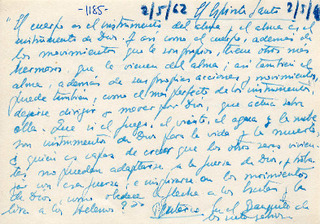 -1185- 2/5/62 El Espíritu Santo 2/5/
"El cuerpo es el instrumento del alma, y el alma es el
instrumento de Dios. Y así como el cuerpo, además de
los movimientos que le son propios, tiene otros más
hermosos que le vienen del alma; así también el
alma, además de sus propias acciones y movimientos,
puede también, como el más perfecto de los instrumentos,
dejarse dirigir o mover por Dios, que actúa sobre
ella. Que si el fuego, el viento, el agua y la nube
son instrumentos de Dios para la vida y la muerte,
¿quién es capaz de creer que los otros seres vivien-
tes no puedan adaptarse a la fuerza de Dios, y traba-
jar con esa fuerza, e inspirarse en los movimientos
de Dios, como la flecha a los y la
lira a los Helenos?" Plutarco. En el Banquete de
los siete sabios